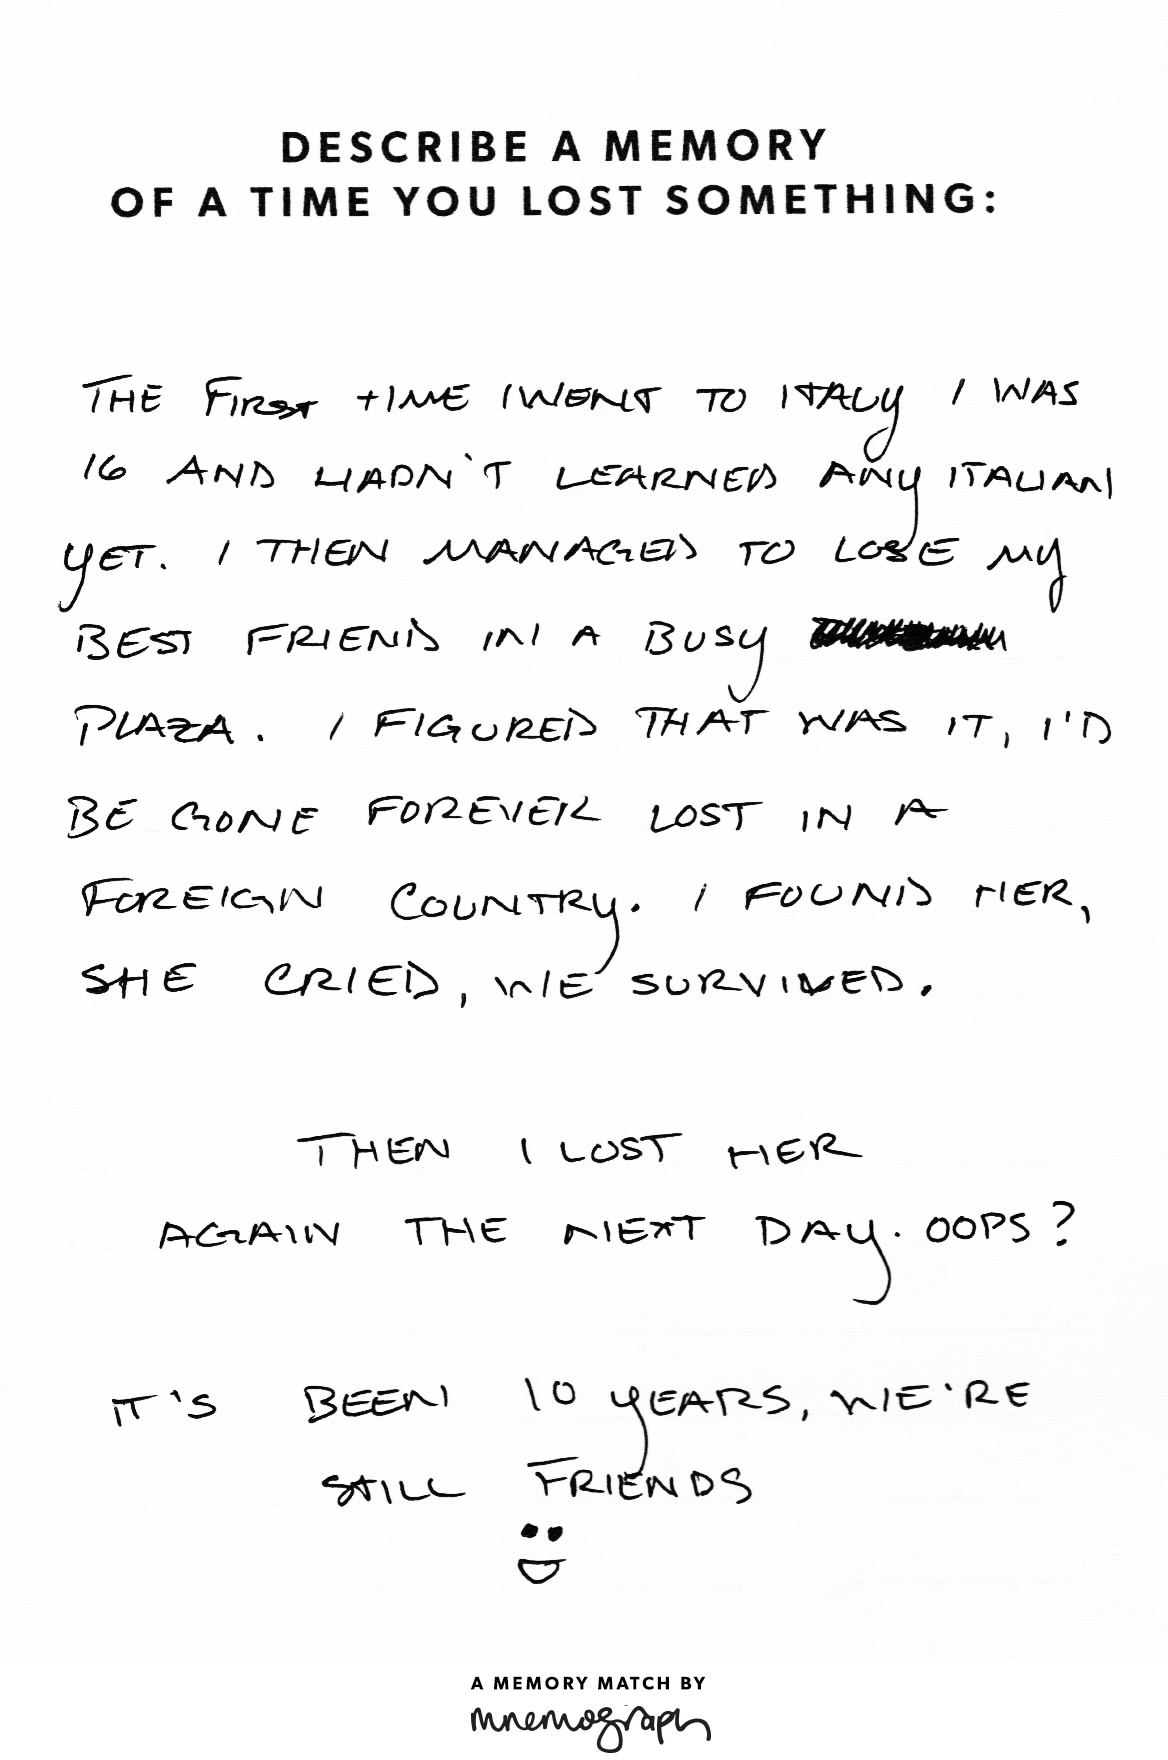 DESCRIBE A MEMORY
OF A TIME YOU LOST SOMETHING:
THE FIRST TIME I WENT TO ITALY I WAS
16 AND HADN'T LEARNED ANY ITALIAN
YET. I THEN MANAGED TO LOSE MY
BEST FRIEND IN A BUSY
PLAZA. I FIGURED THAT WAS IT, I'D
BE GONE FOREVER LOST IN A
FOREIGN COUNTRY. I FOUND HER,
SHE CRIED, WE SURVIVED.
THEN I LOST HER
AGAIN THE NEXT DAY. OOPS?
IT'S BEEN 10 YEARS, WE'RE
STILL FRIENDS
A MEMORY MATCH BY
mnemograph